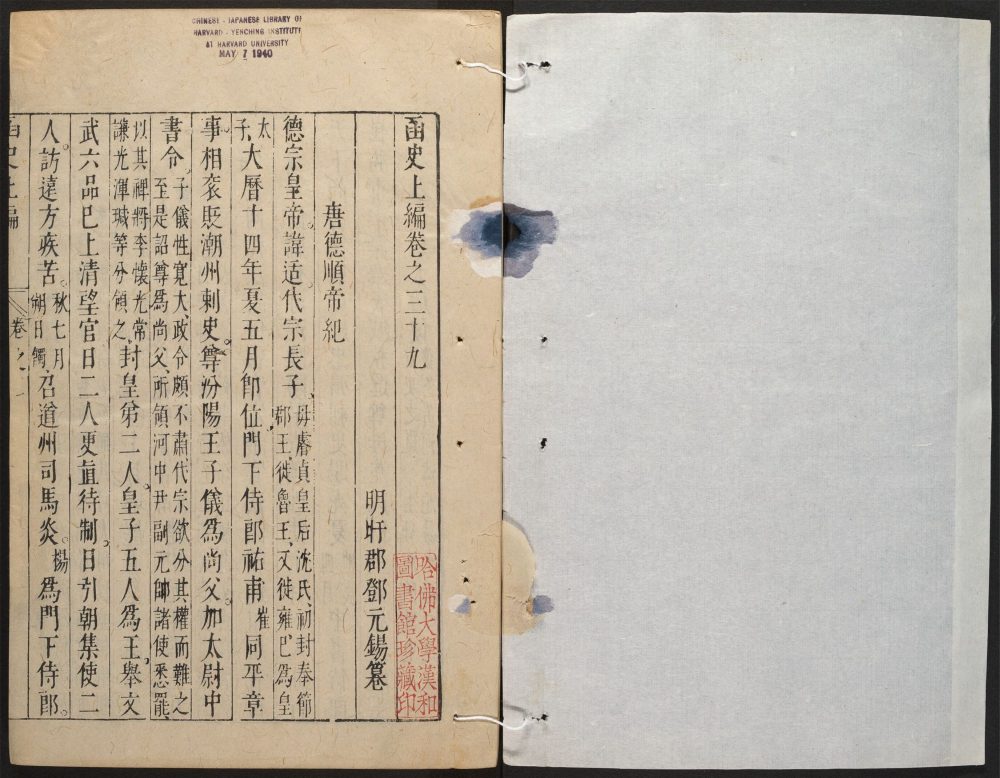 CHINESE - JAPANESE LIBRARY OF
HARVARD - YENCHING INSTITUTE
AT HARVARD UNIVERSITY
MAY 7 1940
函史上編卷之三十九
明盱郡鄧元錫纂
哈佛大學漢和
圖書館珍藏印
唐德順帝紀
德宗皇帝諱适代宗長子母睿貞皇后沈氏初封奉節郡王徙魯王又徙雍巳為皇
太子大曆十四年夏五月卽位門下侍郎祐甫崔同平章
事相袞貶潮州刺史尊汾陽王子儀為尚父加太尉中
書令子儀性寬大政令頗不肅代宗欲分其權而難之至是詔尊為尚父所領河中尹副元帥諸使悉罷
以其裨將李懷光常謙光渾瑊等分領之封皇弟二人皇子五人為王舉文
武六品巳上清望官日二人更直待制日引朝集使二
人訪遠方疾苦秋七月朔日召道州司馬炎楊為門下侍郎
函史上編
卷之